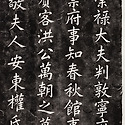 崇祿大夫判敦寧
景府事知春秋館事
賓客洪公萬朝之
敬夫人安東權氏